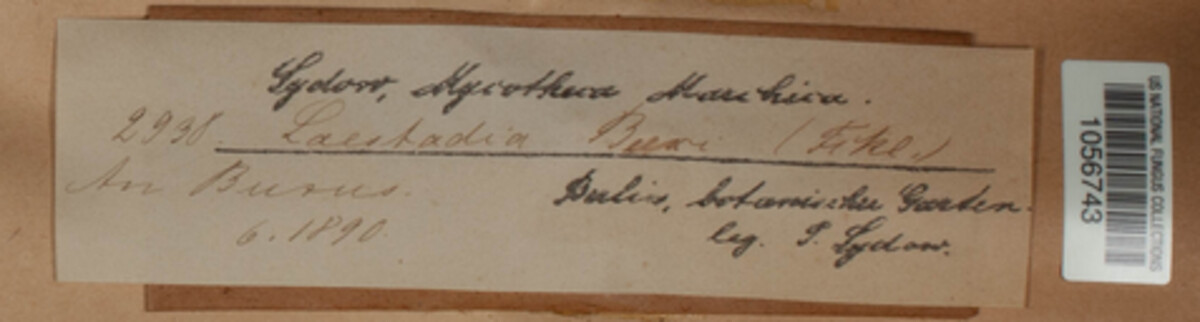 Sydow, Mycotheca Marchica.
2938. Laestadia Buxi (Fckl.)
An Buxus.
6. 1890.
Berlin, botanischer Garten.
leg. P. Sydow.
US NATIONAL FUNGUS COLLECTIONS
1056743